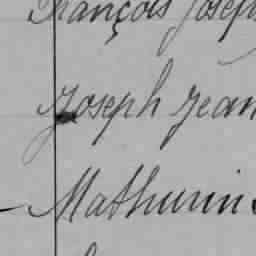 François Joseph
Joseph Jean
Mathurin